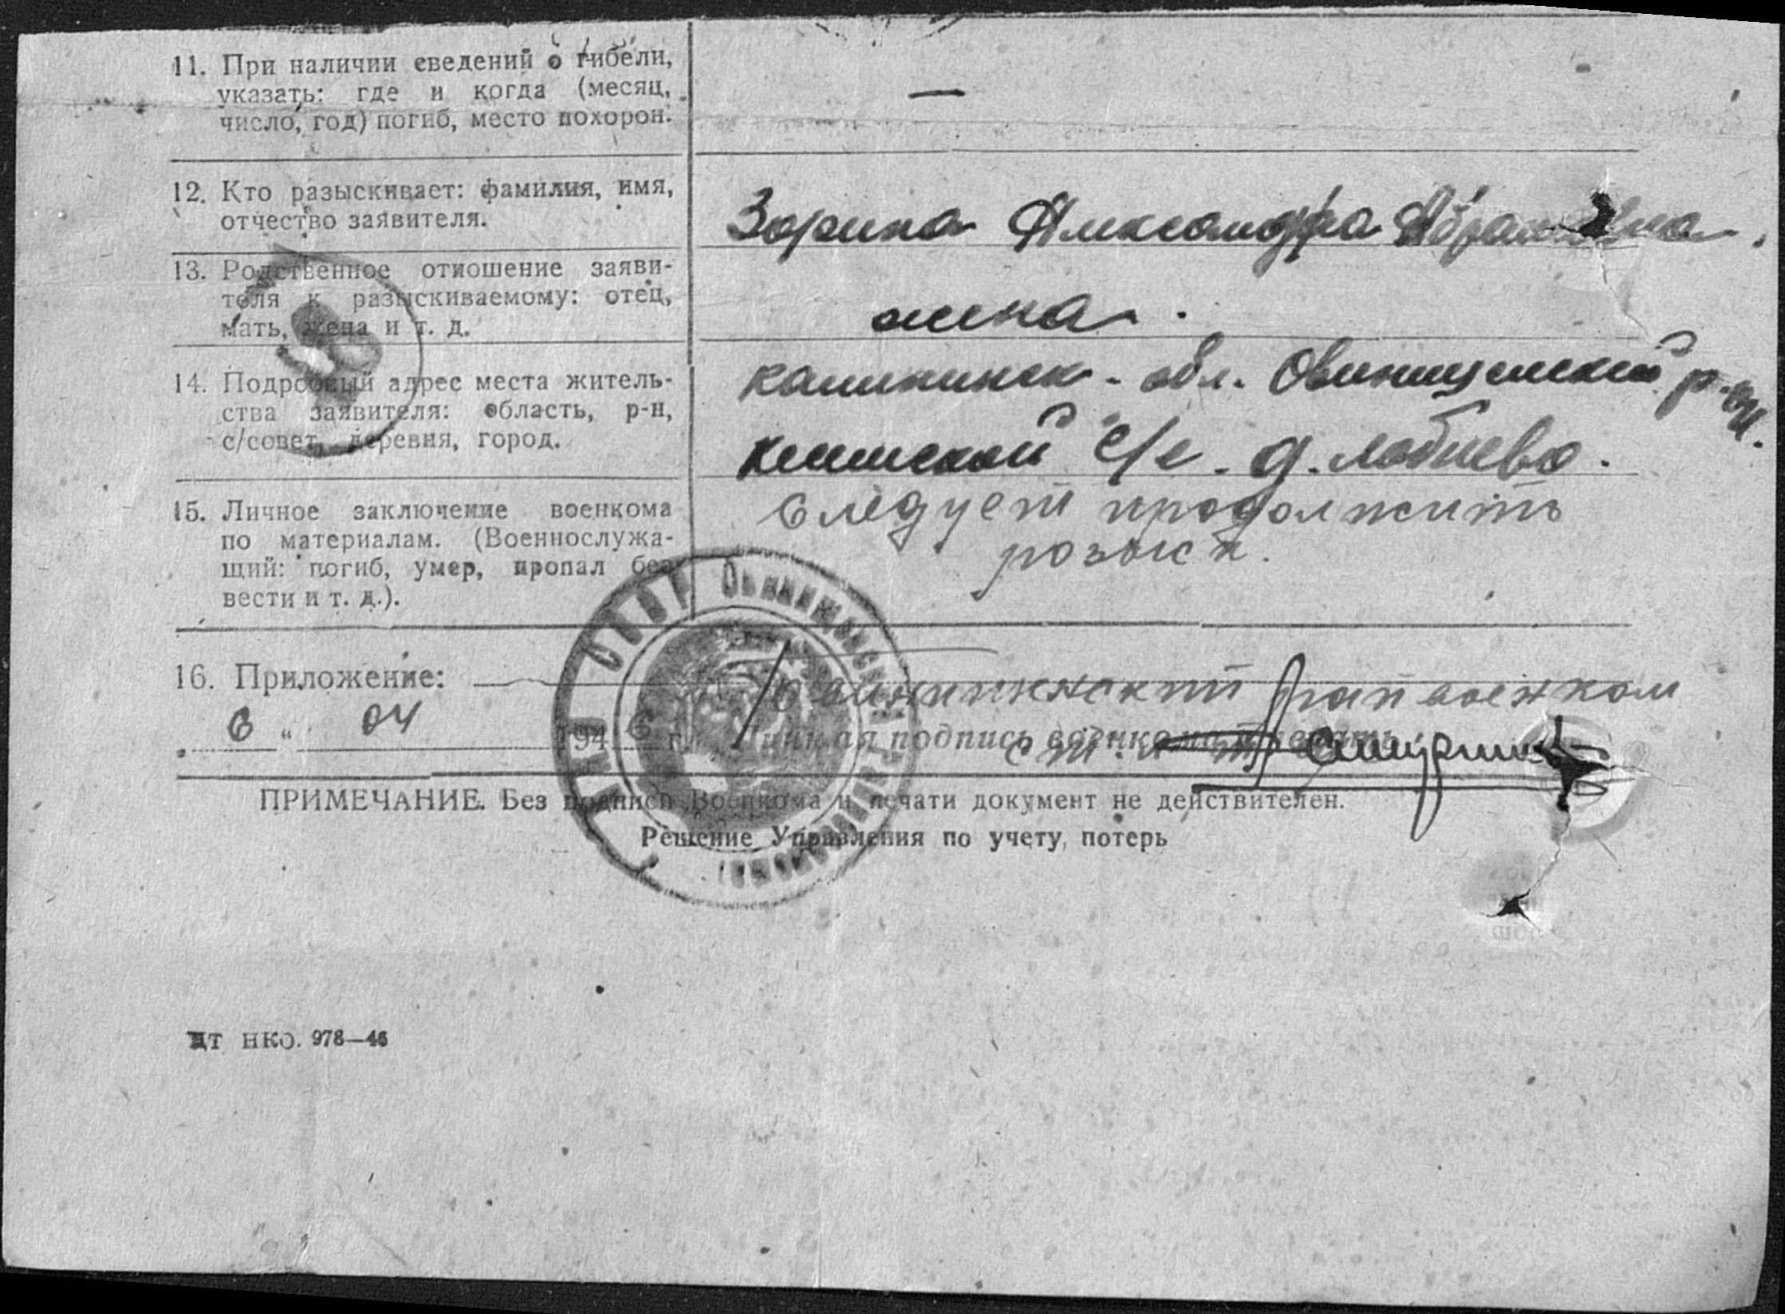 11. При наличии сведений о гибели,
указать: где и когда (месяц,
число, год) погиб, место похорон.
—
12. Кто разыскивает: фамилия, имя,
отчество заявителя.
Зорина Александра Абрамовна.
13. Родственное отношение заяви-
теля к разыскиваемому: отец,
мать, жена и т. д.
жена.
14. Подробный адрес места житель-
ства заявителя: область, р-н,
с/совет, деревня, город.
Калининск. обл. Овинищенский р-он.
с/с. д. Лобнево.
15. Личное заключение военкома
по материалам. (Военнослужа-
щий: погиб, умер, пропал без
вести и т. д.).
Следует продолжить
розыск.
16. Приложение:
Овинищенский райвоенком
6 " 04 1946 г. Личная подпись военкома и печать
ПРИМЕЧАНИЕ. Без подписи Военкома и печати документ не действителен.
Решение Управления по учету потерь
ЦТ НКО. 978—46